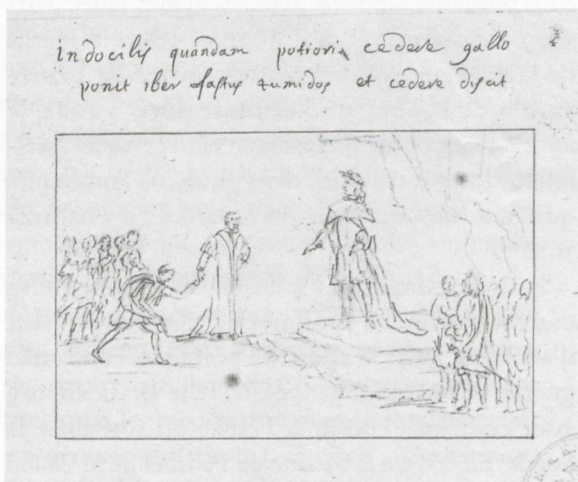 indocilis quandam potiori cedere gallo
ponit iber fastus tumidos et cedere discit